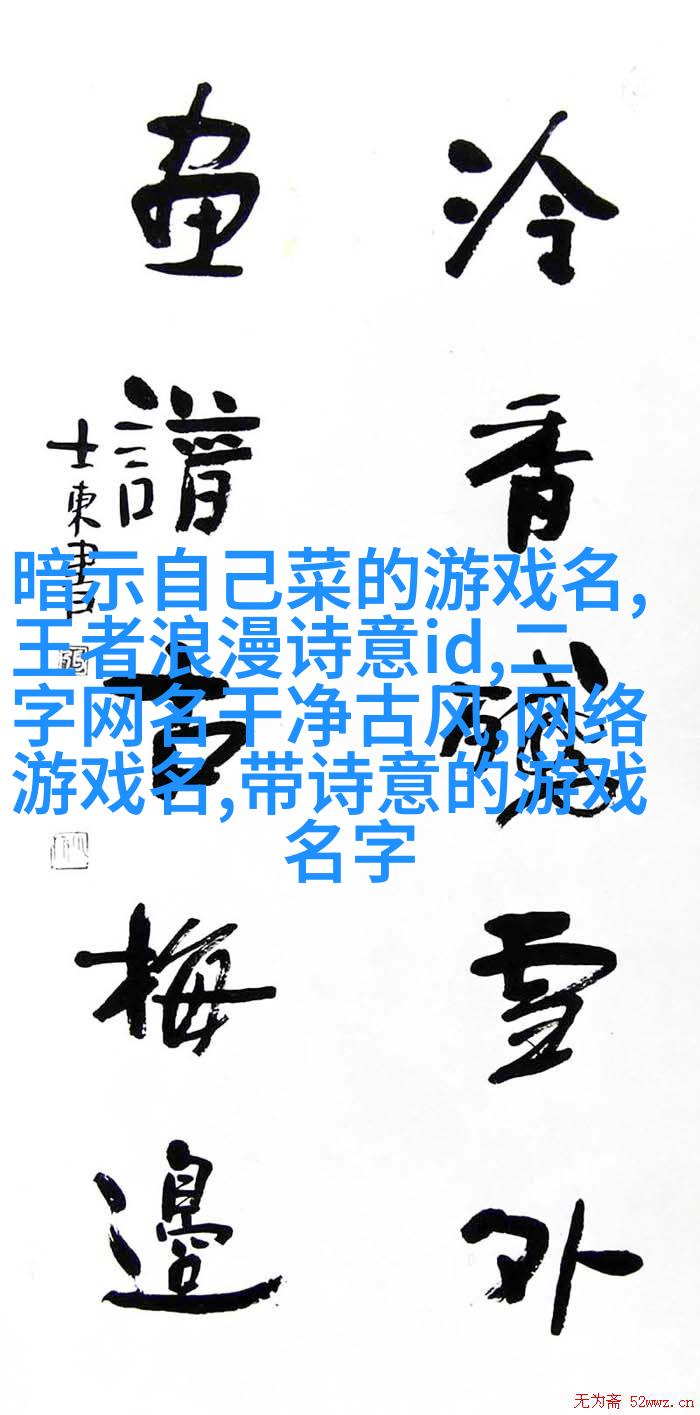 泠香雪外
畫譜古梅邊
士東書
暗示自己菜的游戏名,
王者浪漫诗意id,二
字网名干净古风,网络
游戏名,带诗意的游戏
名字
无为斋 52wwz.cn